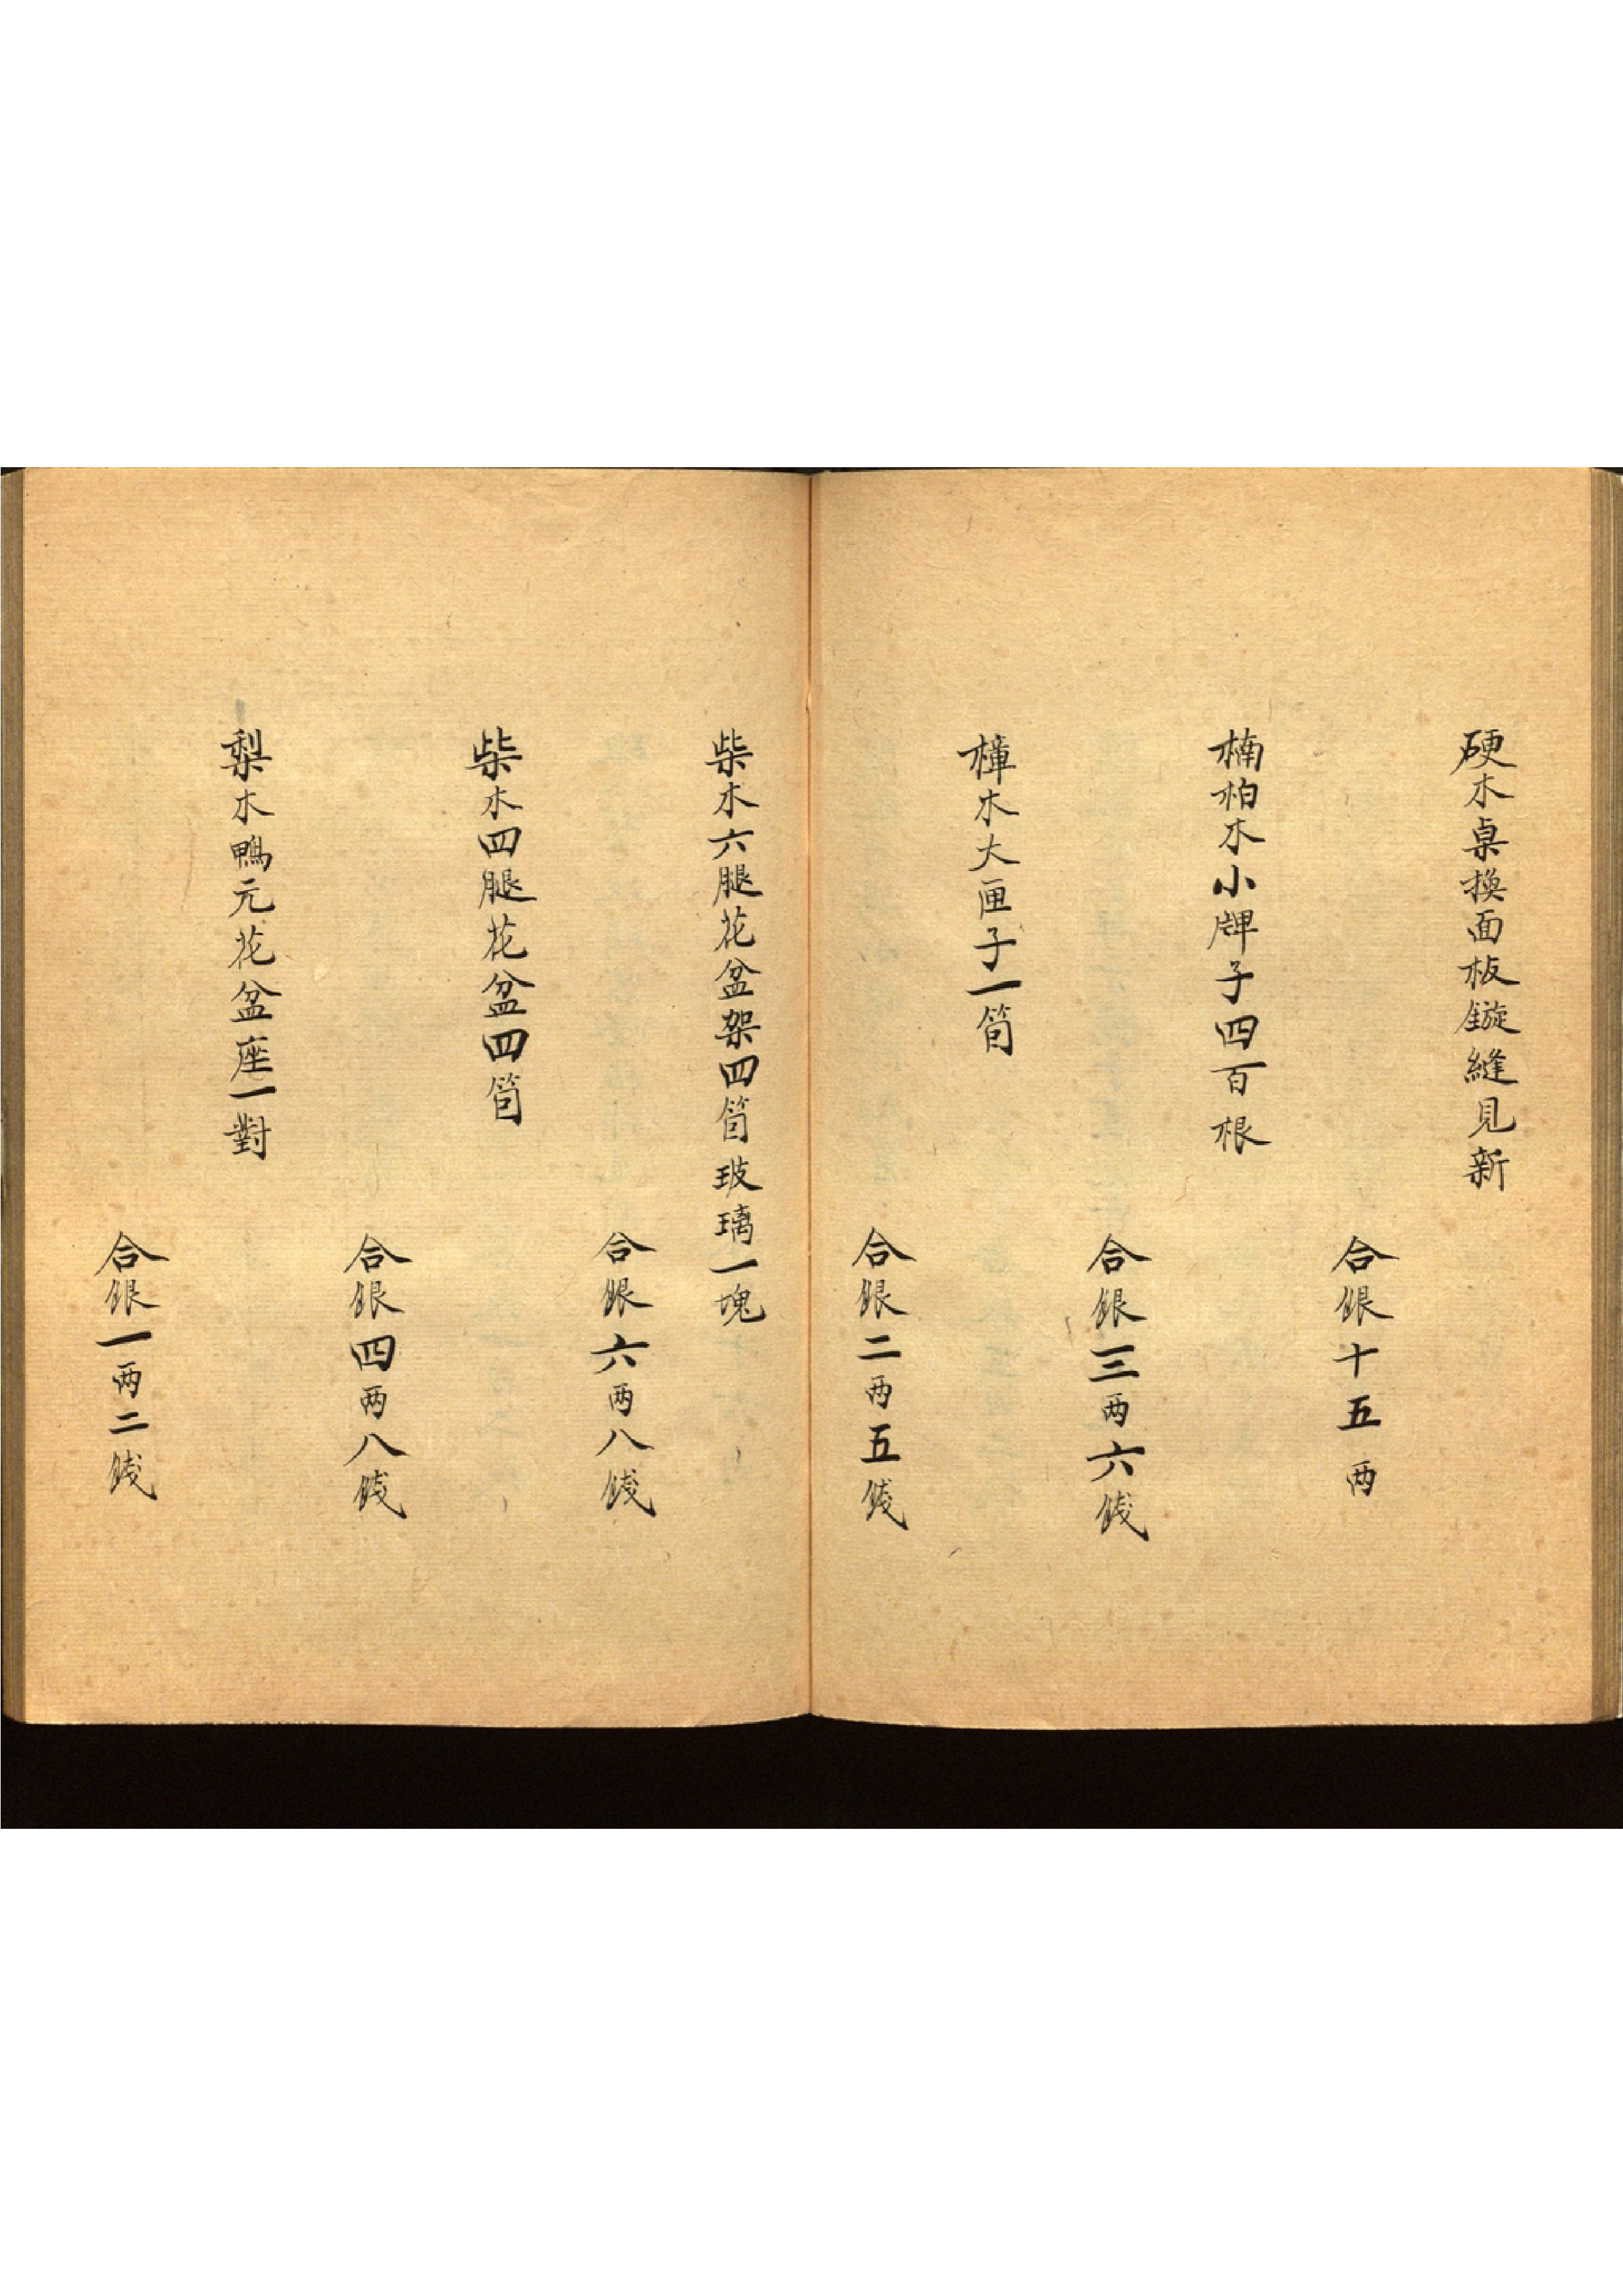 硬木桌換面板鏇縫見新
合銀十五两
楠柏木小牌子四百根
合銀三两六錢
樟木大匣子一箇
合銀二两五錢
柴木六腿花盆架四箇玻璃一塊
合銀六两八錢
柴木四腿花盆四箇
合銀四两八錢
梨木鴨元花盆座一對
合銀一两二錢